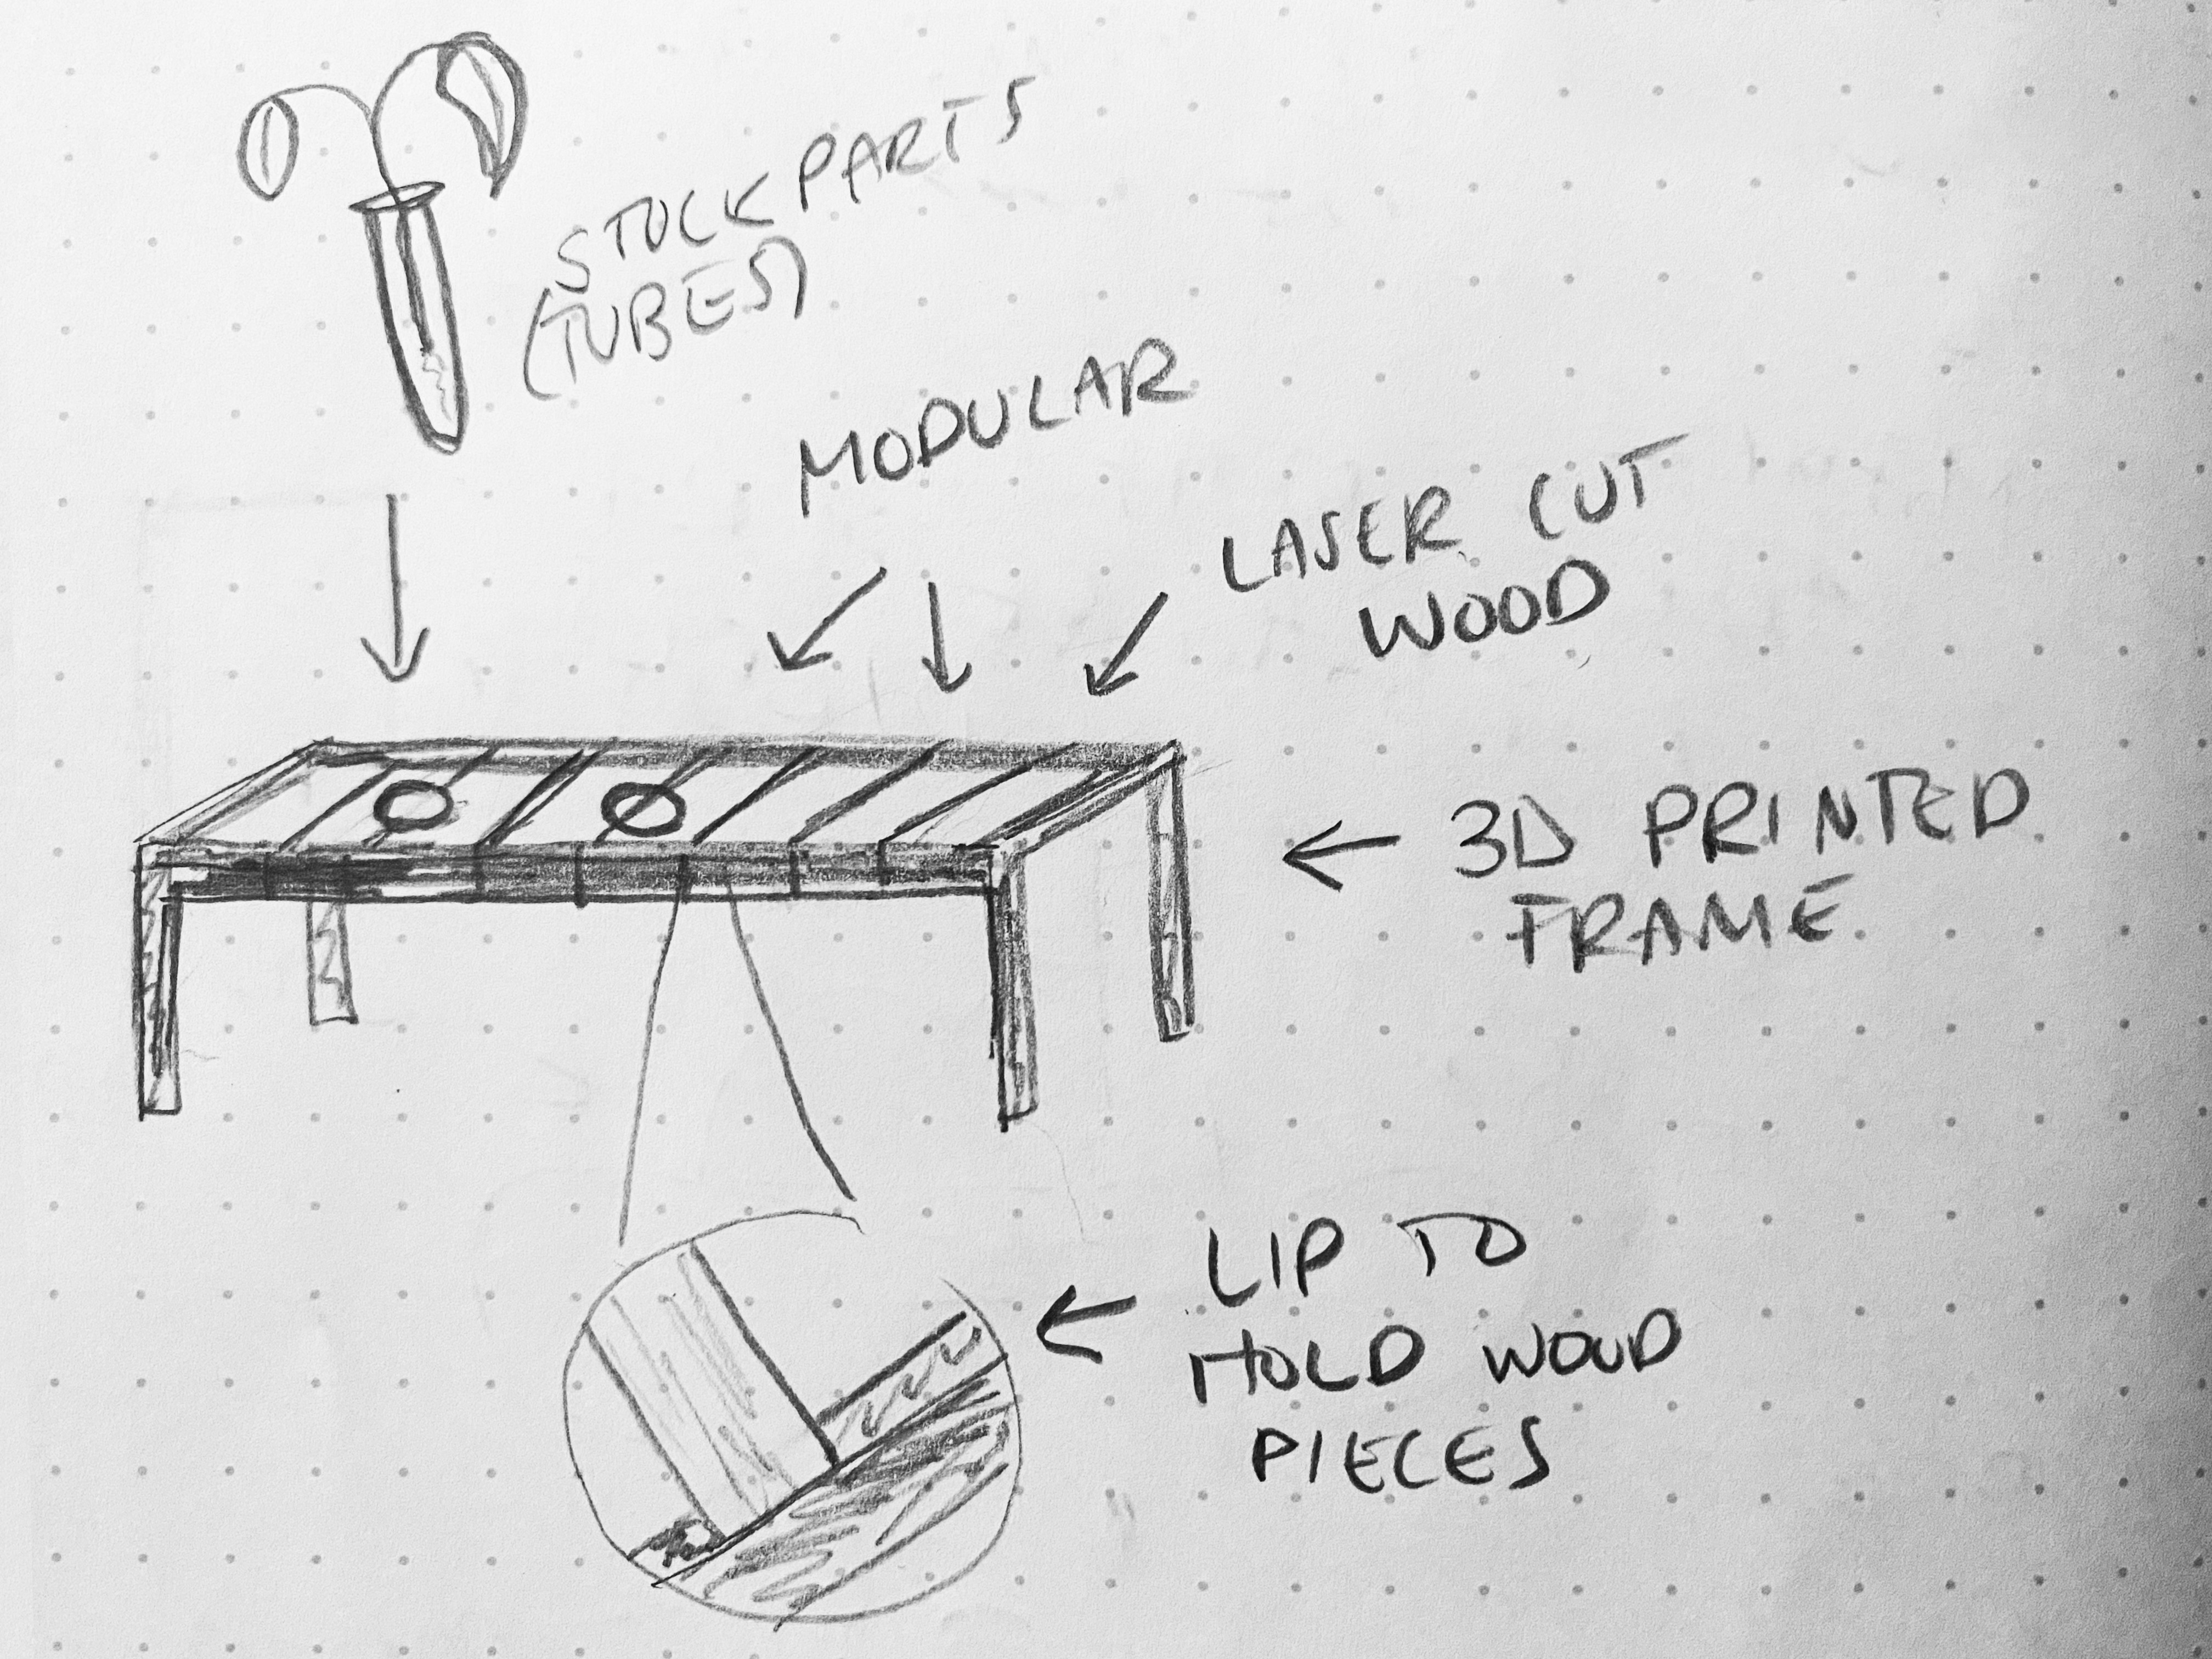 STOCK PARTS
(TUBES)
MODULAR
LASER CUT
WOOD
3D PRINTED
FRAME
LIP TO
HOLD WOOD
PIECES